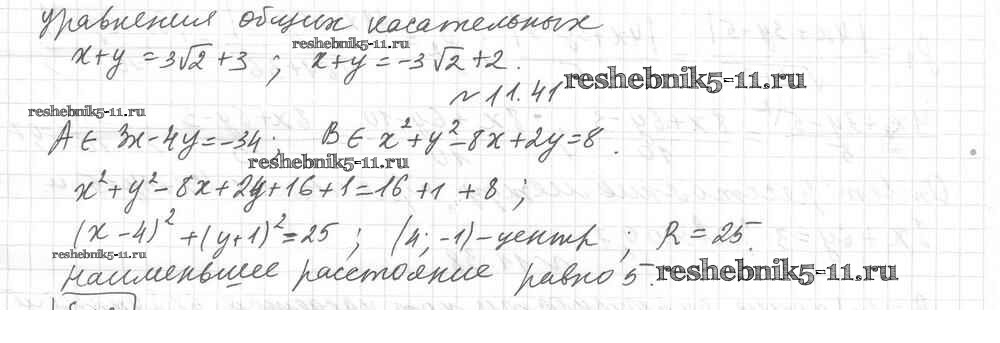 уравнения общих касательных
reshebnik5-11.ru
x+y=3√2+3; x+y=-3√2+2.
reshebnik5-11.ru
~ 11.41
reshebnik5-11.ru
A ∈ 3x-4y=-34; B ∈ x²+y²-8x+2y=8.
reshebnik5-11.ru
x²+y²-8x+2y+16+1=16+1+8;
(x-4)²+(y+1)²=25; (4;-1)-центр; R=25.
reshebnik5-11.ru
наименьшее расстояние равно 5.
reshebnik5-11.ru